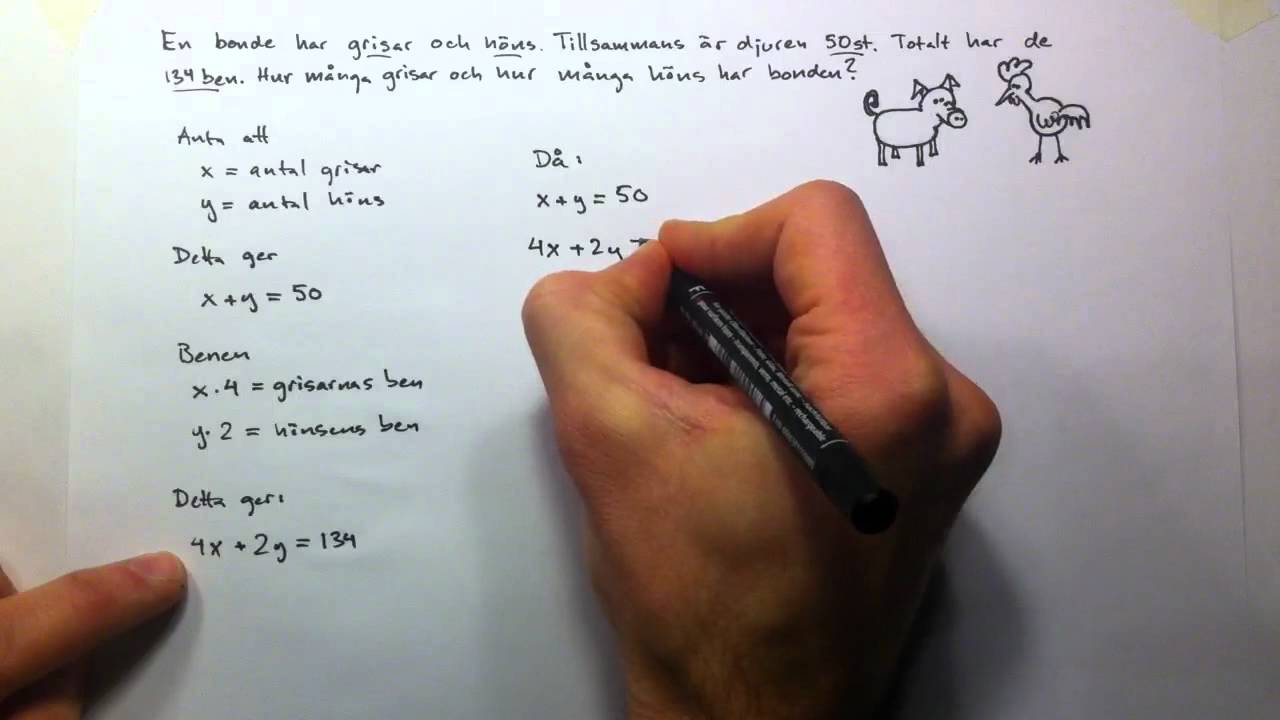 En bonde har grisar och höns. Tillsammans är djuren 50st. Totalt har de
134 ben. Hur många grisar och hur många höns har bonden?
Anta att
x = antal grisar
y = antal höns
Detta ger
x + y = 50
Benen
x · 4 = grisarnas ben
y · 2 = hönsens ben
Detta ger:
4x + 2y = 134
Då:
x + y = 50
4x + 2y